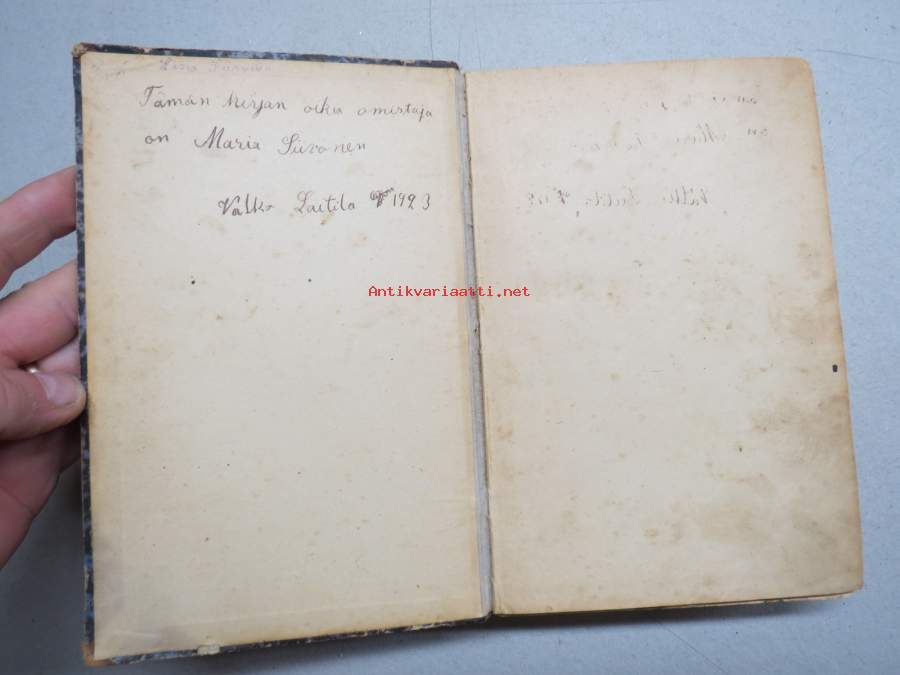 Tämän kirjan oikia omistaja
on Maria Siivonen
Valko Laitila 1923
Antikvariaatti.net